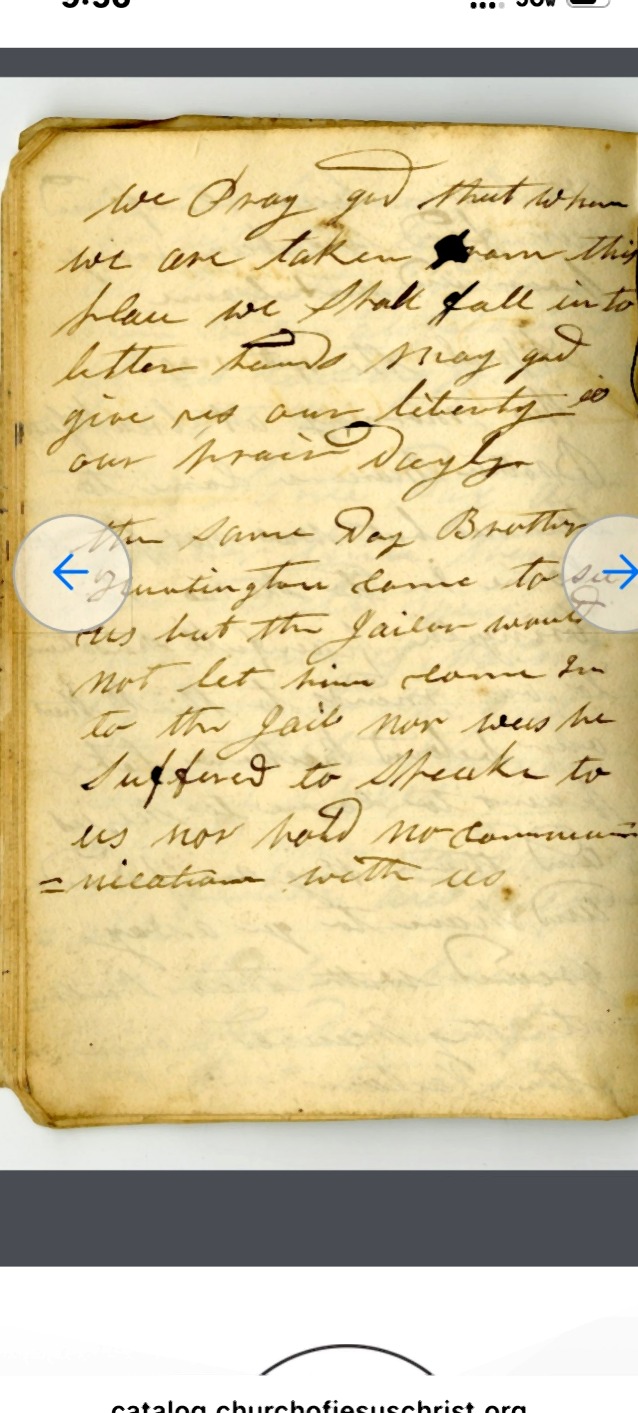 9:56
5Gw
we Pray god that when
we are taken from this
place we Shall fall into
better hands may god
give us our liberty is
our prair Dayly
the same Day Brother
Huntington come to see
us but the Jailor would
not let him come In
to the Jail nor was he
Suffered to Speake to
us nor hold no commun=
=nication with us
catalog.churchofjesuschrist.org